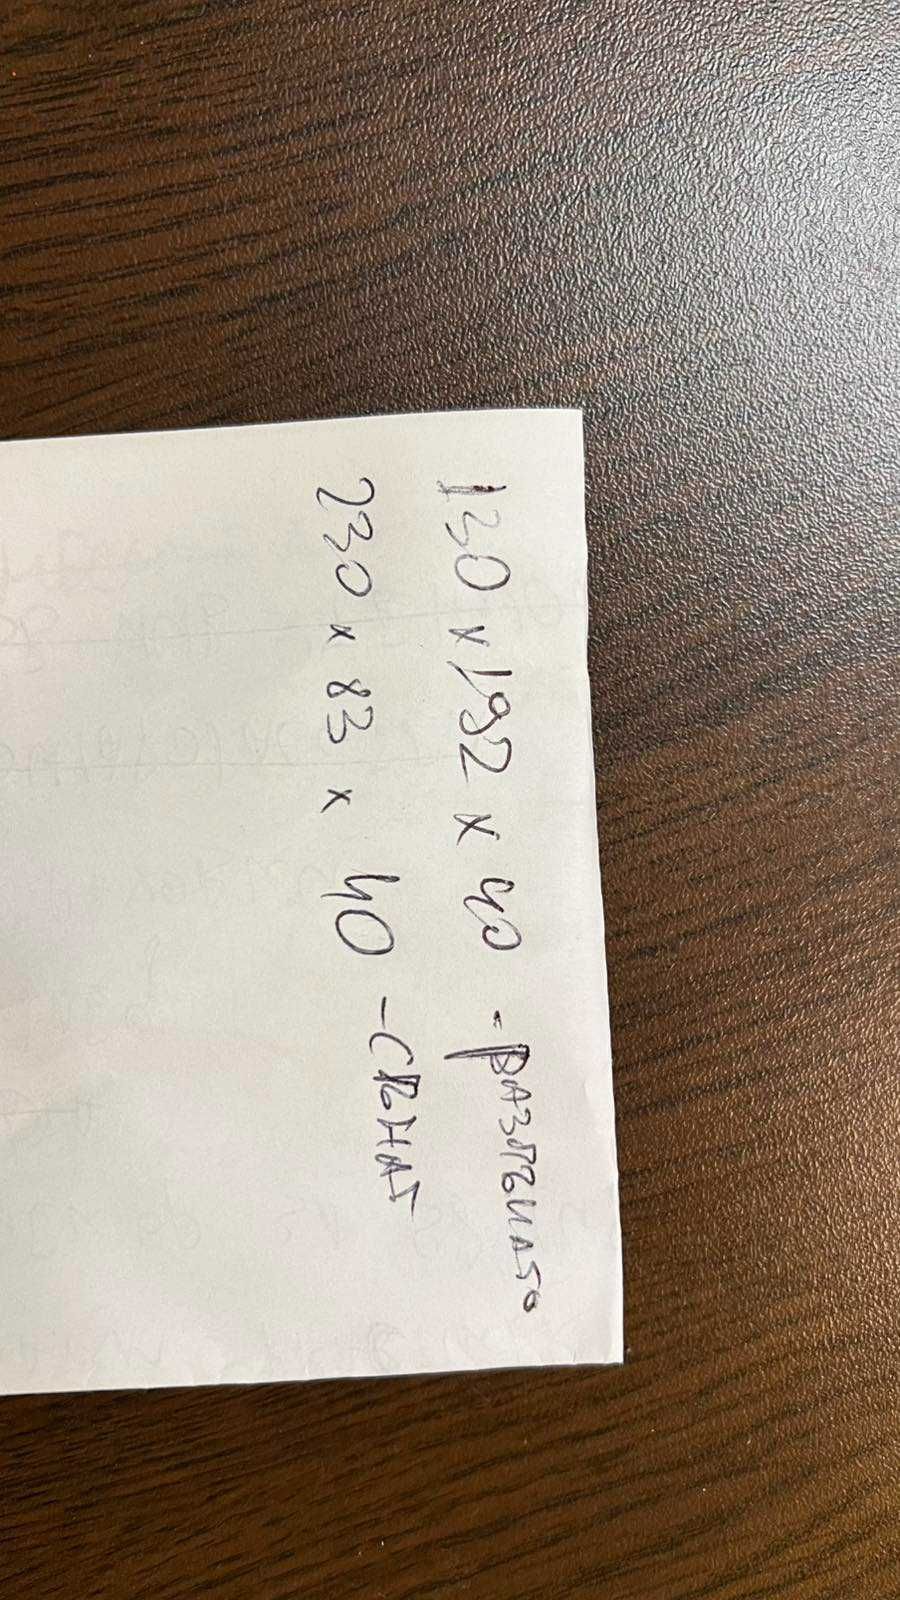 130 x 192 x 40 - РАЗПЪНАТО
230 x 83 x 40 - СГЪНАТ